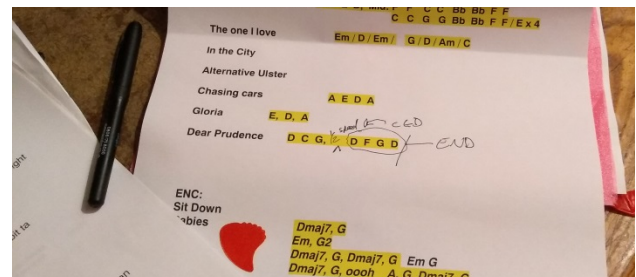 F F C C Bb Bb F F
C C G G Bb Bb F F/E x4
The one I love Em / D / Em / G / D / Am / C
In the City
Alternative Ulster
Chasing cars A E D A
Gloria E, D, A
Dear Prudence D C G, D F G D END
ENC:
Sit Down Dmaj7, G
Em, G2
Dmaj7, G, Dmaj7, G Em G
Dmaj7, G, oooh A, G, Dmaj7, G